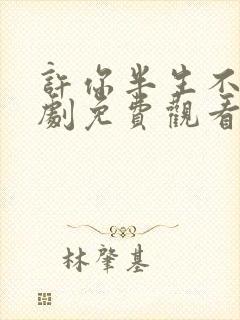 許你半生不
劇免費觀看
林肇基